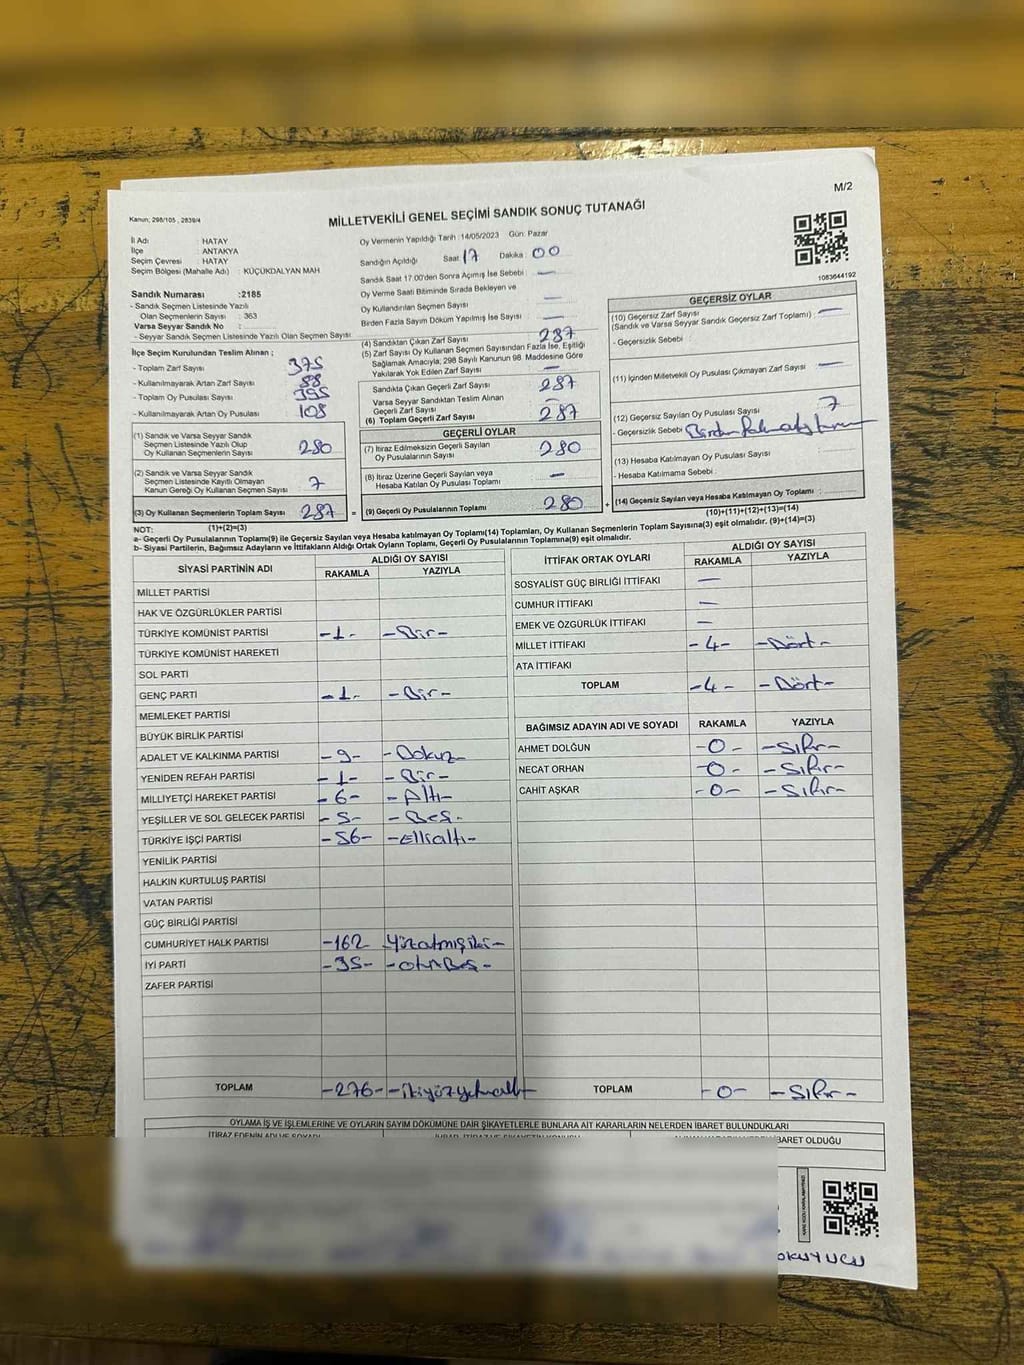 M/2
Kanun; 298/105 , 2839/4
MİLLETVEKİLİ GENEL SEÇİMİ SANDIK SONUÇ TUTANAĞI
İl Adı : HATAY
İlçe : ANTAKYA
Seçim Çevresi : HATAY
Seçim Bölgesi (Mahalle Adı) : KÜÇÜKDALYAN MAH
Sandık Numarası :2185
- Sandık Seçmen Listesinde Yazılı
Olan Seçmenlerin Sayısı : 363
Varsa Seyyar Sandık No :
- Seyyar Sandık Listesinde Yazılı Olan Seçmen Sayısı
İlçe Seçim Kurulundan Teslim Alınan ;
- Toplam Zarf Sayısı 375
- Kullanılmayarak Artan Zarf Sayısı 88
- Toplam Oy Pusulası Sayısı 395
- Kullanılmayarak Artan Oy Pusulası 108
(1) Sandık ve Varsa Seyyar Sandık
Seçmen Listesinde Yazılı Olup
Oy Kullanan Seçmenlerin Sayısı 280
(2) Sandık ve Varsa Seyyar Sandık
Seçmen Listesinde Kayıtlı Olmayan
Kanun Gereği Oy Kullanan Seçmen Sayısı 7
(3) Oy Kullanan Seçmenlerin Toplam Sayısı 287 =
(1)+(2)=(3)
Oy Vermenin Yapıldığı Tarih :14/05/2023 Gün: Pazar
Sandığın Açıldığı Saat 17 Dakika : 00
Sandık Saat 17.00'den Sonra Açımış İse Sebebi : —
Oy Verme Saati Bitiminde Sırada Bekleyen ve
Oy Kullandırılan Seçmen Sayısı : —
Birden Fazla Sayım Döküm Yapılmış İse Sayısı : —
(4) Sandıktan Çıkan Zarf Sayısı 287
(5) Zarf Sayısı Oy Kullanan Seçmen Sayısından Fazla İse, Eşitliği
Sağlamak Amacıyla, 298 Sayılı Kanunun 98. Maddesine Göre
Yakılarak Yok Edilen Zarf Sayısı —
Sandıkta Çıkan Geçerli Zarf Sayısı 287
Varsa Seyyar Sandıktan Teslim Alınan
Geçerli Zarf Sayısı —
(6) Toplam Geçerli Zarf Sayısı 287
GEÇERLİ OYLAR
(7) İtiraz Edilmeksizin Geçerli Sayılan
Oy Pusulalarının Sayısı 280
(8) İtiraz Üzerine Geçerli Sayılan veya
Hesaba Katılan Oy Pusulası Toplamı —
(9) Geçerli Oy Pusulalarının Toplamı 280 +
1083644192
GEÇERSİZ OYLAR
(10) Geçersiz Zarf Sayısı
(Sandık ve Varsa Seyyar Sandık Geçersiz Zarf Toplamı) : —
- Geçersizlik Sebebi :
(11) İçinden Milletvekili Oy Pusulası Çıkmayan Zarf Sayısı —
(12) Geçersiz Sayılan Oy Pusulası Sayısı 7
- Geçersizlik Sebebi
(13) Hesaba Katılmayan Oy Pusulası Sayısı :
- Hesaba Katılmama Sebebi :
(14) Geçersiz Sayılan veya Hesaba Katılmayan Oy Toplamı :
(10)+(11)+(12)+(13)=(14)
NOT:
a- Geçerli Oy Pusulalarının Toplamı(9) ile Geçersiz Sayılan veya Hesaba katılmayan Oy Toplamı(14) Toplamları, Oy Kullanan Seçmenlerin Toplam Sayısına(3) eşit olmalıdır. (9)+(14)=(3)
b- Siyasi Partilerin, Bağımsız Adayların ve İttifakların Aldığı Ortak Oyların Toplamı, Geçerli Oy Pusulalarının Toplamına(9) eşit olmalıdır.
SİYASİ PARTİNİN ADI ALDIĞI OY SAYISI
RAKAMLA YAZIYLA
MİLLET PARTİSİ
HAK VE ÖZGÜRLÜKLER PARTİSİ
TÜRKİYE KOMÜNİST PARTİSİ -1- -Bir-
TÜRKİYE KOMÜNİST HAREKETİ
SOL PARTİ
GENÇ PARTİ -1- -Bir-
MEMLEKET PARTİSİ
BÜYÜK BİRLİK PARTİSİ
ADALET VE KALKINMA PARTİSİ -9- -Dokuz-
YENİDEN REFAH PARTİSİ -1- -Bir-
MİLLİYETÇİ HAREKET PARTİSİ -6- -Altı-
YEŞİLLER VE SOL GELECEK PARTİSİ -5- -Beş-
TÜRKİYE İŞÇİ PARTİSİ -56- -Ellialtı-
YENİLİK PARTİSİ
HALKIN KURTULUŞ PARTİSİ
VATAN PARTİSİ
GÜÇ BİRLİĞİ PARTİSİ
CUMHURİYET HALK PARTİSİ -162 -Yüzatmışiki-
İYİ PARTİ -35- -otuzBeş-
ZAFER PARTİSİ
TOPLAM -276- -ikiyüzyetmişaltı-
İTTİFAK ORTAK OYLARI ALDIĞI OY SAYISI
RAKAMLA YAZIYLA
SOSYALİST GÜÇ BİRLİĞİ İTTİFAKI —
CUMHUR İTTİFAKI —
EMEK VE ÖZGÜRLÜK İTTİFAKI —
MİLLET İTTİFAKI -4- -Dört-
ATA İTTİFAKI
TOPLAM -4- -Dört-
BAĞIMSIZ ADAYIN ADI VE SOYADI RAKAMLA YAZIYLA
AHMET DOLĞUN -0- -Sıfır-
NECAT ORHAN -0- -Sıfır-
CAHİT AŞKAR -0- -Sıfır-
TOPLAM -0- -Sıfır-
OYLAMA İŞ VE İŞLEMLERİNE VE OYLARIN SAYIM DÖKÜMÜNE DAİR ŞİKAYETLERLE BUNLARA AİT KARARLARIN NELERDEN İBARET BULUNDUKLARI
İTİRAZ EDENİN ADI VE SOYADI
İBARET OLDUĞU
OKUYUCU